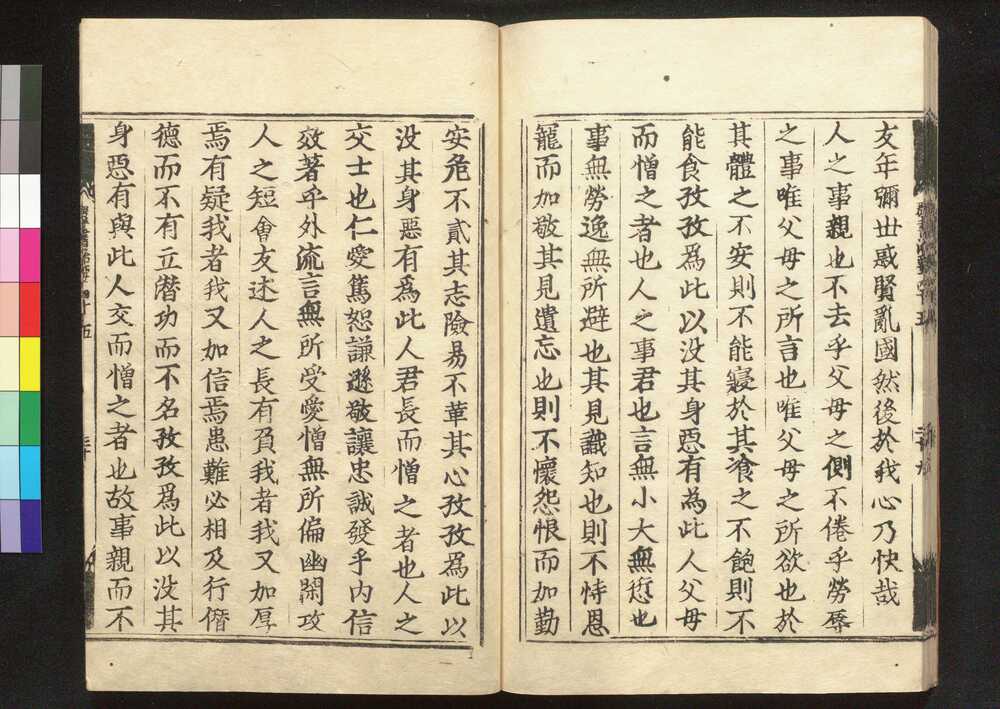 友年彌世惑賢亂國然後於我心乃快哉
人之事親也不去乎父母之側不倦乎勞辱
之事唯父母之所言也唯父母之所欲也於
其體之不安則不能寢於其飡之不飽則不
能食孜孜為此以没其身惡有為此人父母
而憎之者也人之事君也言無小大無愆也
事無勞逸無所避也其見識知也則不恃恩
寵而加敬其見遺忘也則不懷怨恨而加勤
安危不貳其志險易不革其心孜孜為此以
没其身惡有為此人君長而憎之者也人之
交士也仁愛篤恕謙遜敬讓忠誠發乎内信
效著乎外流言無所受愛憎無所偏幽閑攻
人之短會友述人之長有負我者我又加厚
焉有疑我者我又加信焉患難必相及行僭
德而不有立潜功而不名孜孜為此以没其
身惡有與此人交而憎之者也故事親而不
四十五